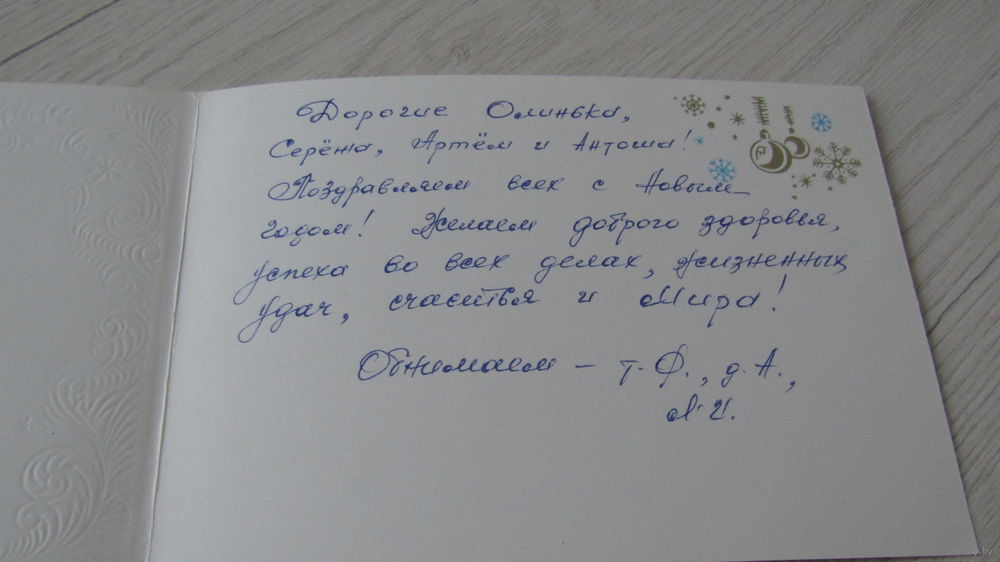 Дорогие Олинька,
Серёжа, Артём и Антоша!
Поздравляем всех с Новым
годом! Желаем доброго здоровья,
успеха во всех делах, жизненных
удач, счастья и Мира!
Обнимаем – т. Ф., д. А.,